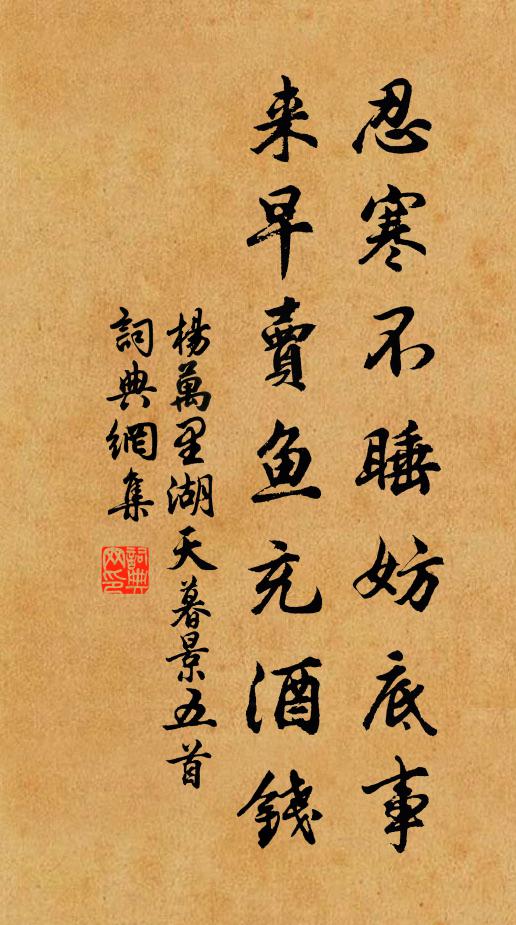 忍寒不睡妨底事
来早賣鱼充酒錢
楊萬里湖天暮景五首
詞典網集
詞典网印